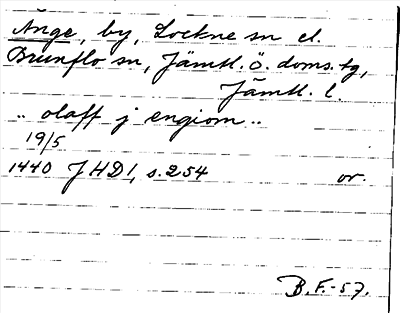 Ånge, by, Lockne sn el.
Brunflo sn, Jämtl. ö. doms. tg,
Jämtl. l.
.. olaff j engiom ..
19/5
1440 JHD1, s. 254 or.
B.F.-57.